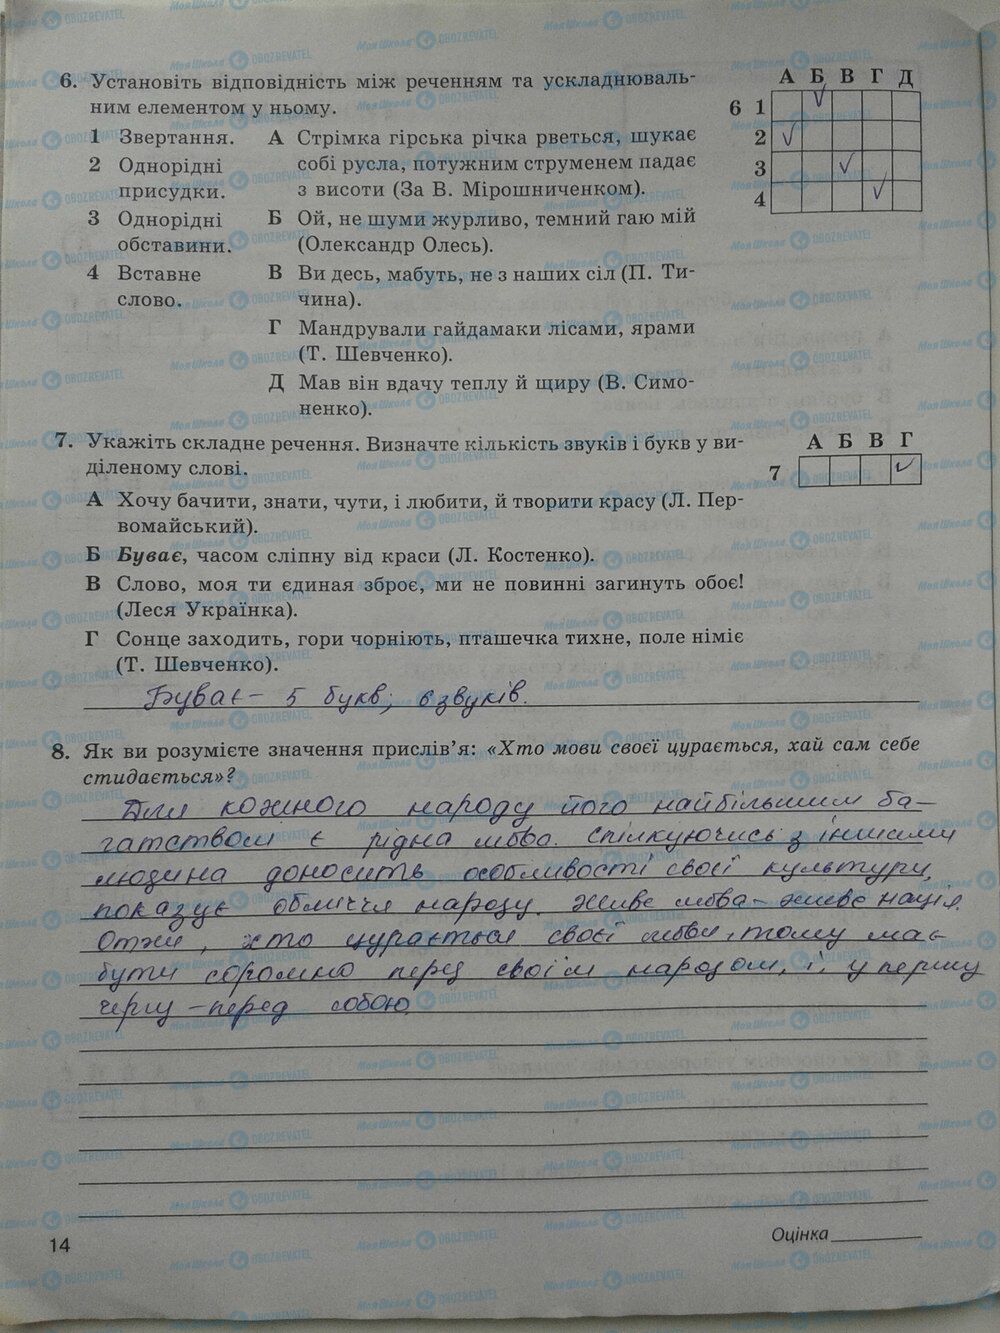 6. Установіть відповідність між реченням та ускладнюваль-
ним елементом у ньому.
А Б В Г Д
6 1
2
3
4
1 Звертання.
2 Однорідні
присудки.
3 Однорідні
обставини.
4 Вставне
слово.
А Стрімка гірська річка рветься, шукає
собі русла, потужним струменем падає
з висоти (За В. Мірошниченком).
Б Ой, не шуми журливо, темний гаю мій
(Олександр Олесь).
В Ви десь, мабуть, не з наших сіл (П. Ти-
чина).
Г Мандрували гайдамаки лісами, ярами
(Т. Шевченко).
Д Мав він вдачу теплу й щиру (В. Симо-
ненко).
7. Укажіть складне речення. Визначте кількість звуків і букв у ви-
діленому слові.
А Б В Г
7
А Хочу бачити, знати, чути, і любити, й творити красу (Л. Пер-
вомайський).
Б Буває, часом сліпну від краси (Л. Костенко).
В Слово, моя ти єдиная зброє, ми не повинні загинуть обоє!
(Леся Українка).
Г Сонце заходить, гори чорніють, пташечка тихне, поле німіє
(Т. Шевченко).
Буває – 5 букв; 6 звуків.
8. Як ви розумієте значення прислів’я: «Хто мови своєї цурається, хай сам себе
стидається»?
Для кожного народу його найбільшим ба-
гатством є рідна мова. Спілкуючись з іншими
людина доносить особливості своєї культури,
показує обличчя народу. Живе мова – живе нація.
Отже, хто цурається своєї мови, тому має
бути соромно перед своїм народом, і, у першу
чергу – перед собою.
14
Оцінка
МояШкола OBOZREVATEL